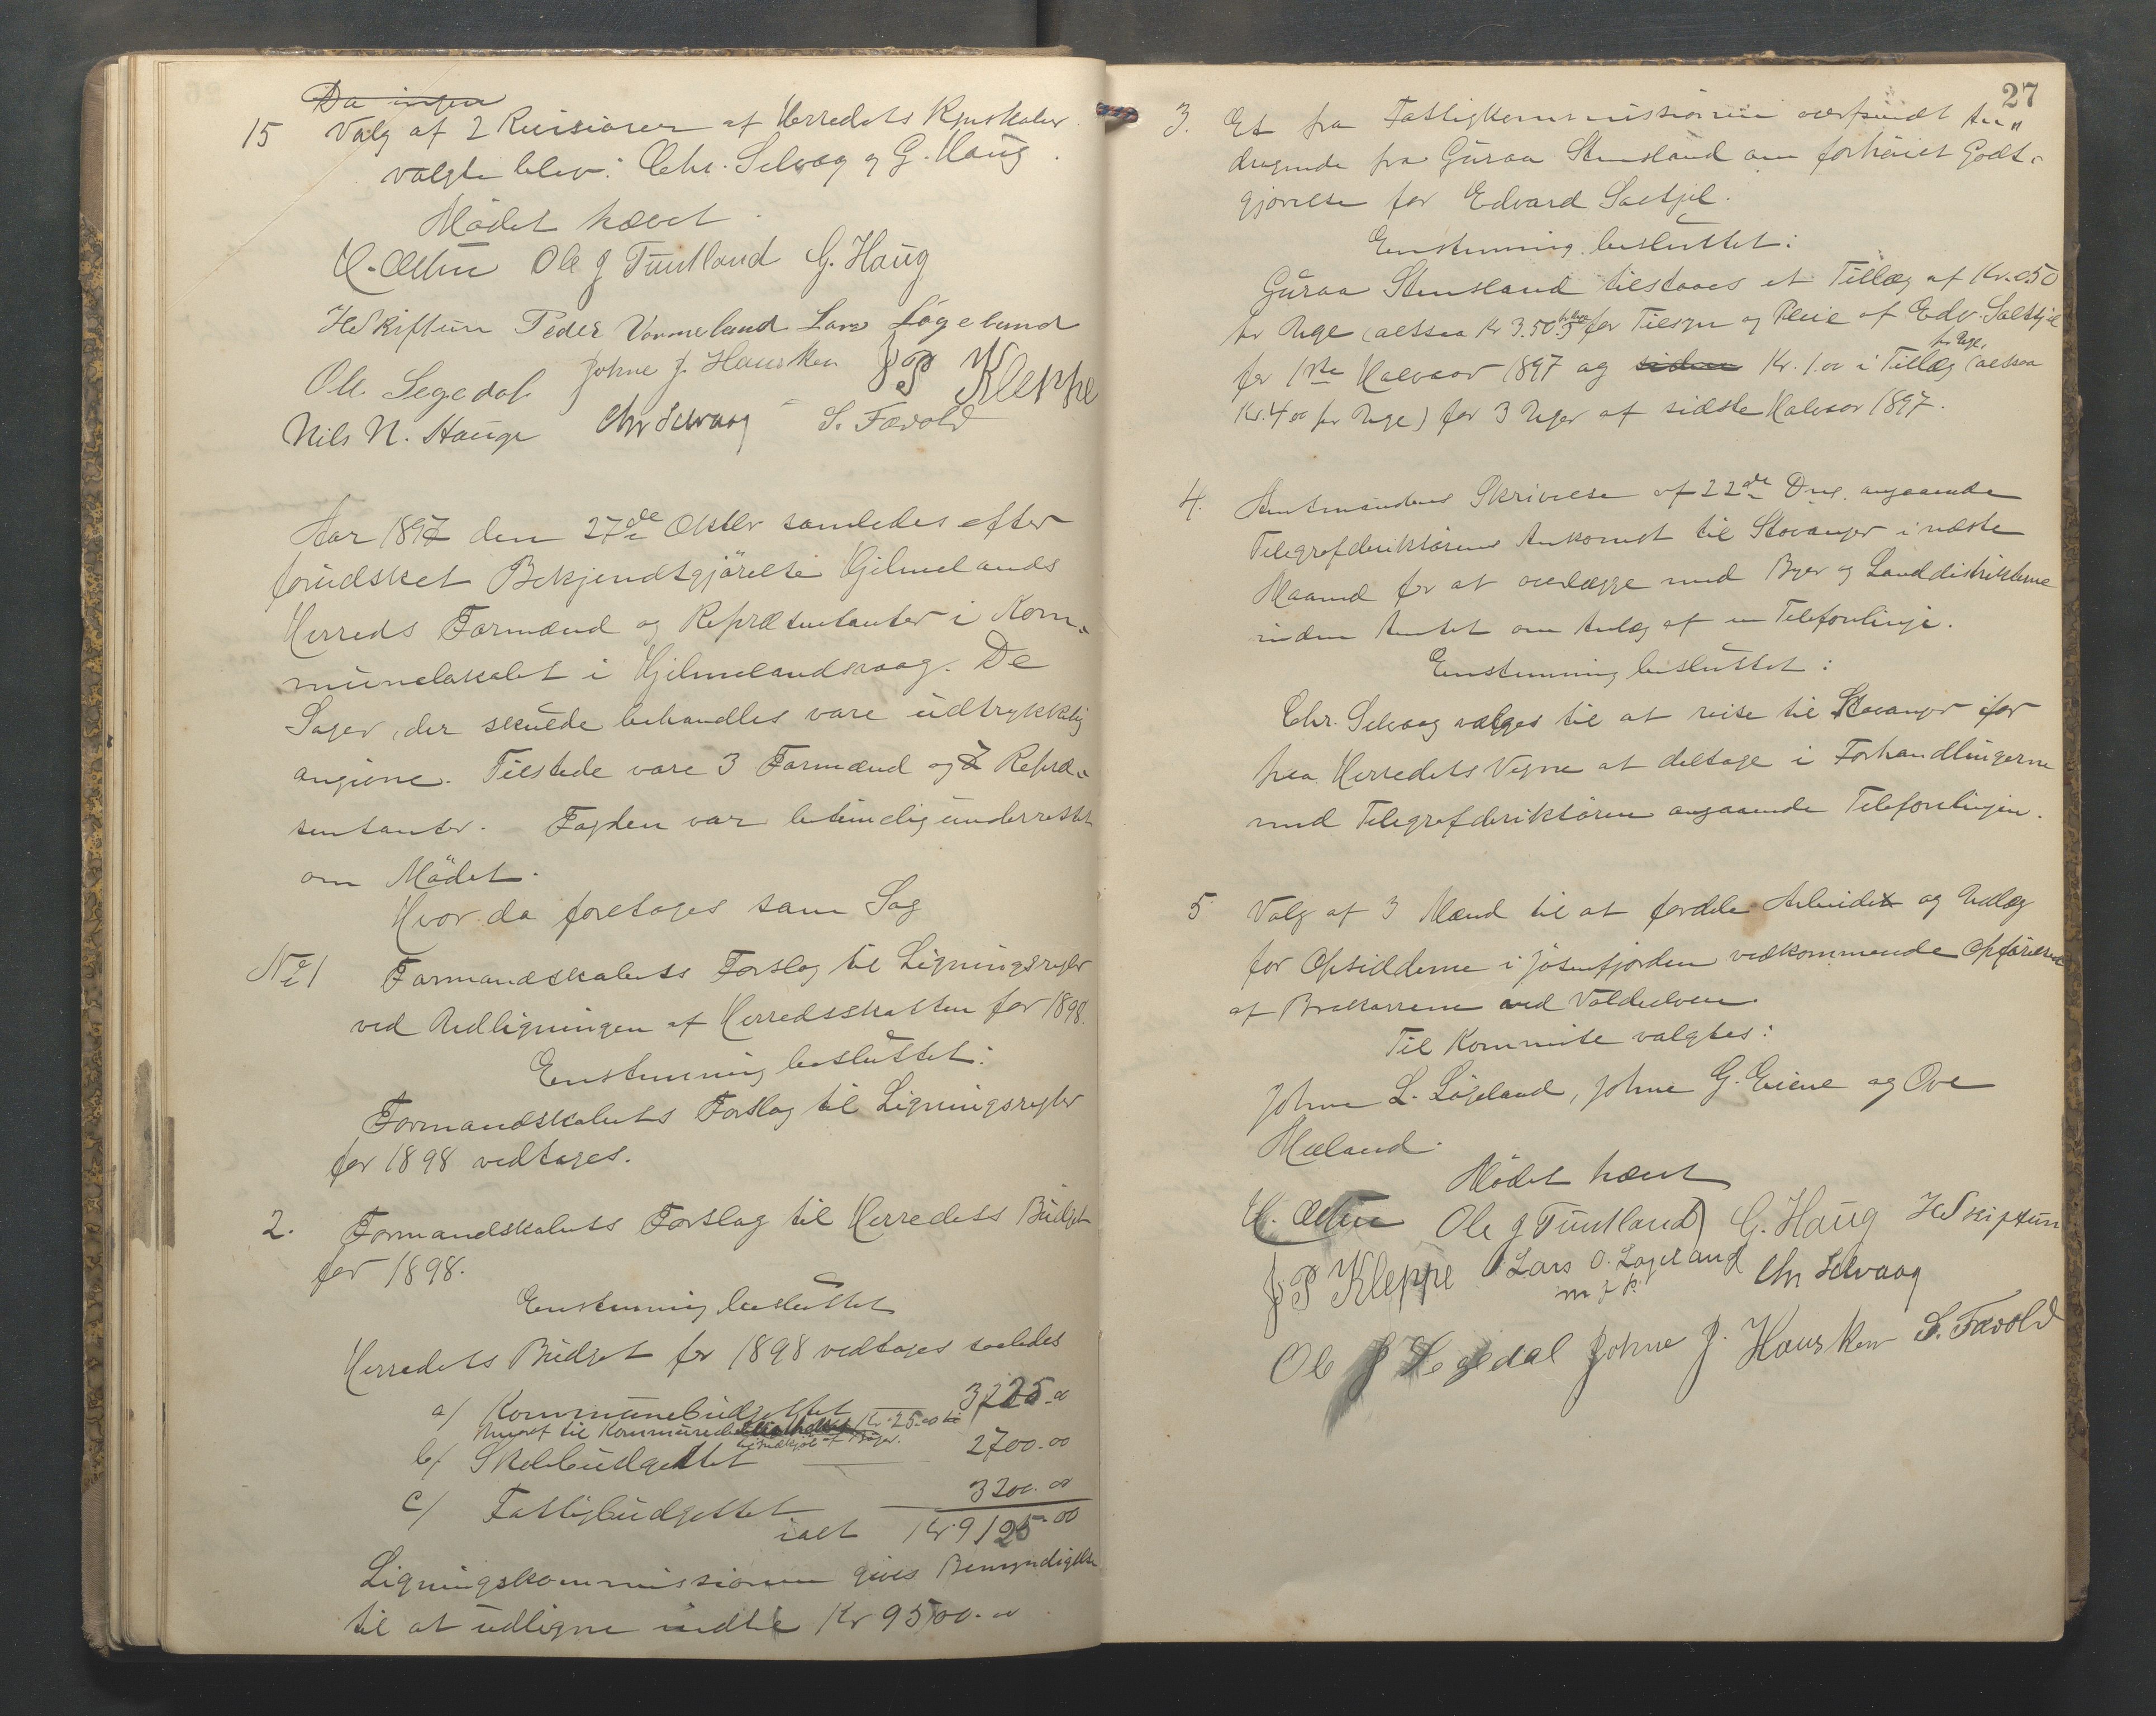 Da ingen
15 Valg af 2 Revisorer af Herredets Regnskaber.
valgte blev: Chr. Selvaag og G. Haug.
Mödet hævet.
Ole G Tuntland G. Haug
HSkiftun Peder Vormeland Lars Løgeland
Ole Segedal Johne J. Hausken J P Kleppe
Nils N. Hauge Chr Selvaag S. Fævold
Aar 1897 den 27de Oktbr samledes efter
forudsket Bekjendtgjörelse Hjelmelands
Herreds Formænd og Repræsentanter i Kom-
munelokalet i Hjelmelandsvaag. De
Sager, der skulde behandles vare udtrykkelig
angivne. Tilstede vare 3 Formænd og 7 Repræ-
sentanter. Fogden var betimelig underrettet
om Mödet.
Hvor da foretoges som Sag
No 1 Formandskabets Forslag til Ligningsregler
ved Udligningen af Herredsskatten for 1898.
Enstemmig besluttet:
Formandskabets Forslag til Ligningsregler
for 1898 vedtages.
2. Formandskabets Forslag til Herredets Budget
for 1898.
Enstemmig besluttet
Herredets Budget for 1898 vedtages saaledes
a/ Kommunebudgettet 3225.00
hvoraf til Kommune Kr. 25.00 til
Indkjöb af Bøger.
b/ Skolebudgettet 2700.00
c/ Fattigbudgettet 3200.00
ialt Kr 9125.00
Ligningskommissionen gives Bemyndigelse
til at udligne indtil Kr 9500.00
27
3. Et fra Fattigkommissionen oversendt An-
dragende fra Guraa Stensland om forhöiet Godt-
gjörelse for Edvard Saltjel.
Enstemmig besluttet:
Guraa Stensland tilstaaes et Tillæg af Kr. 0.50
pr Uge (altsaa Kr 3.50 for Tilsyn og Pleie af Edv. Saltsjel
pr Uge,
for 1ste Halvaar 1897 og siden Kr. 1.00 i Tillæg (altsaa
Kr. 4.00 pr Uge) for 3 Uger af sidste Halvaar 1897.
4. Amtmandens Skrivelse af 22de Ds. angaaende
Telegrafdirektörens Ankomst til Stavanger i næste
Maaned for at overlægge med Byer og Landdistrikterne
inden Amtet om Anlæg af en Telefonlinje.
Enstemmig besluttet:
Chr. Selvaag vælges til at reise til Stavanger for
paa Herredets Vegne at deltage i Forhandlingerne
med Telegrafdirektören angaaende Telefonlinjen.
5 Valg af 3 Mænd til at fordele Arbeidet og Udlæg
for Opsidderne i Jösenfjorden vedkommende Opförelsen
af Brokarrene ved Valdeelven.
Til Kommite valgtes:
Johne L. Løgeland, Johne G. Eiene og Ove
Mæland.
Mödet hævet
Ole G Tuntland G. Haug HSkiptun
J P Kleppe Lars O. Løgeland Chr Selvaag
m f P.
Ole J Segedal Johne J. Hausken S. Fævold